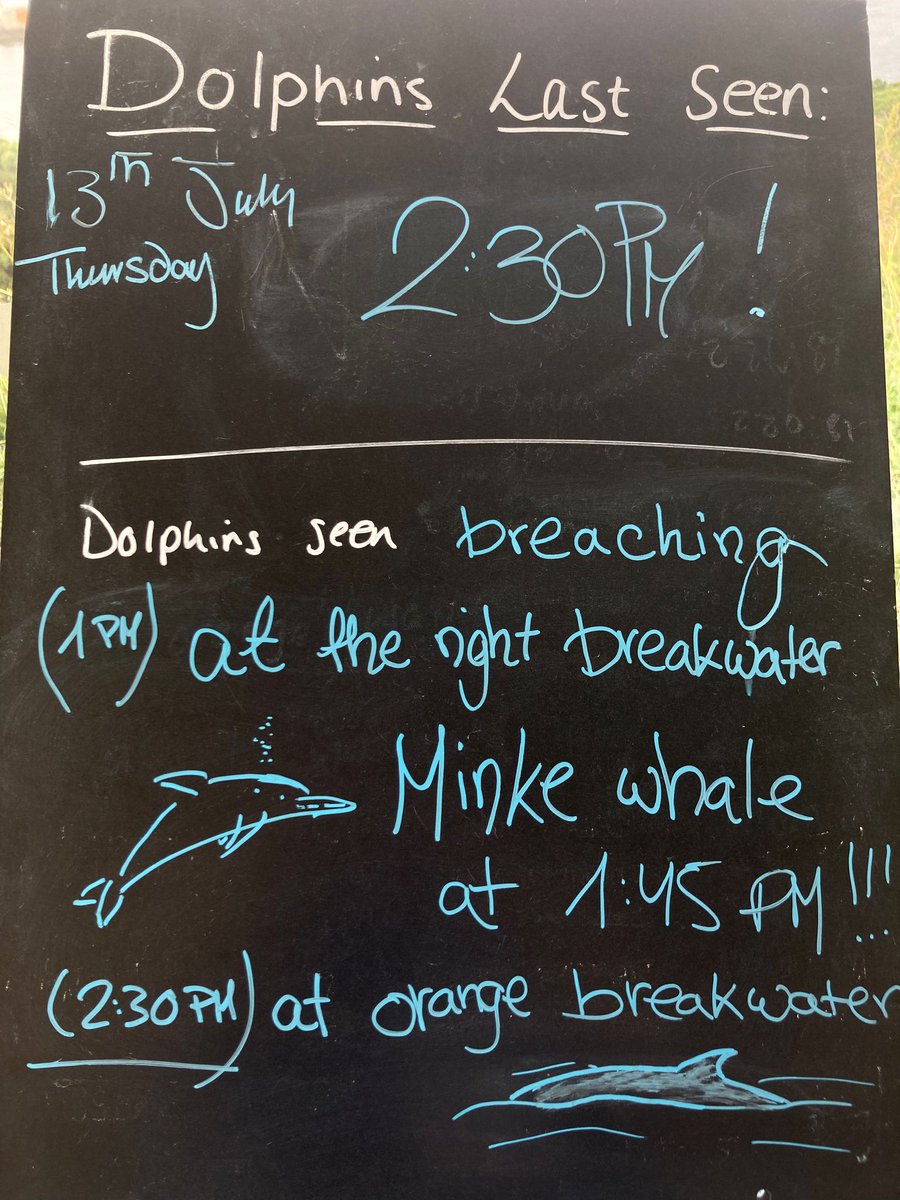 Dolphins Last Seen:
13th July
Thursday
2:30PM !
Dolphins seen breaching
(1PM) at the right breakwater
Minke whale
at 1:45 PM!!!
(2:30PM) at orange breakwater